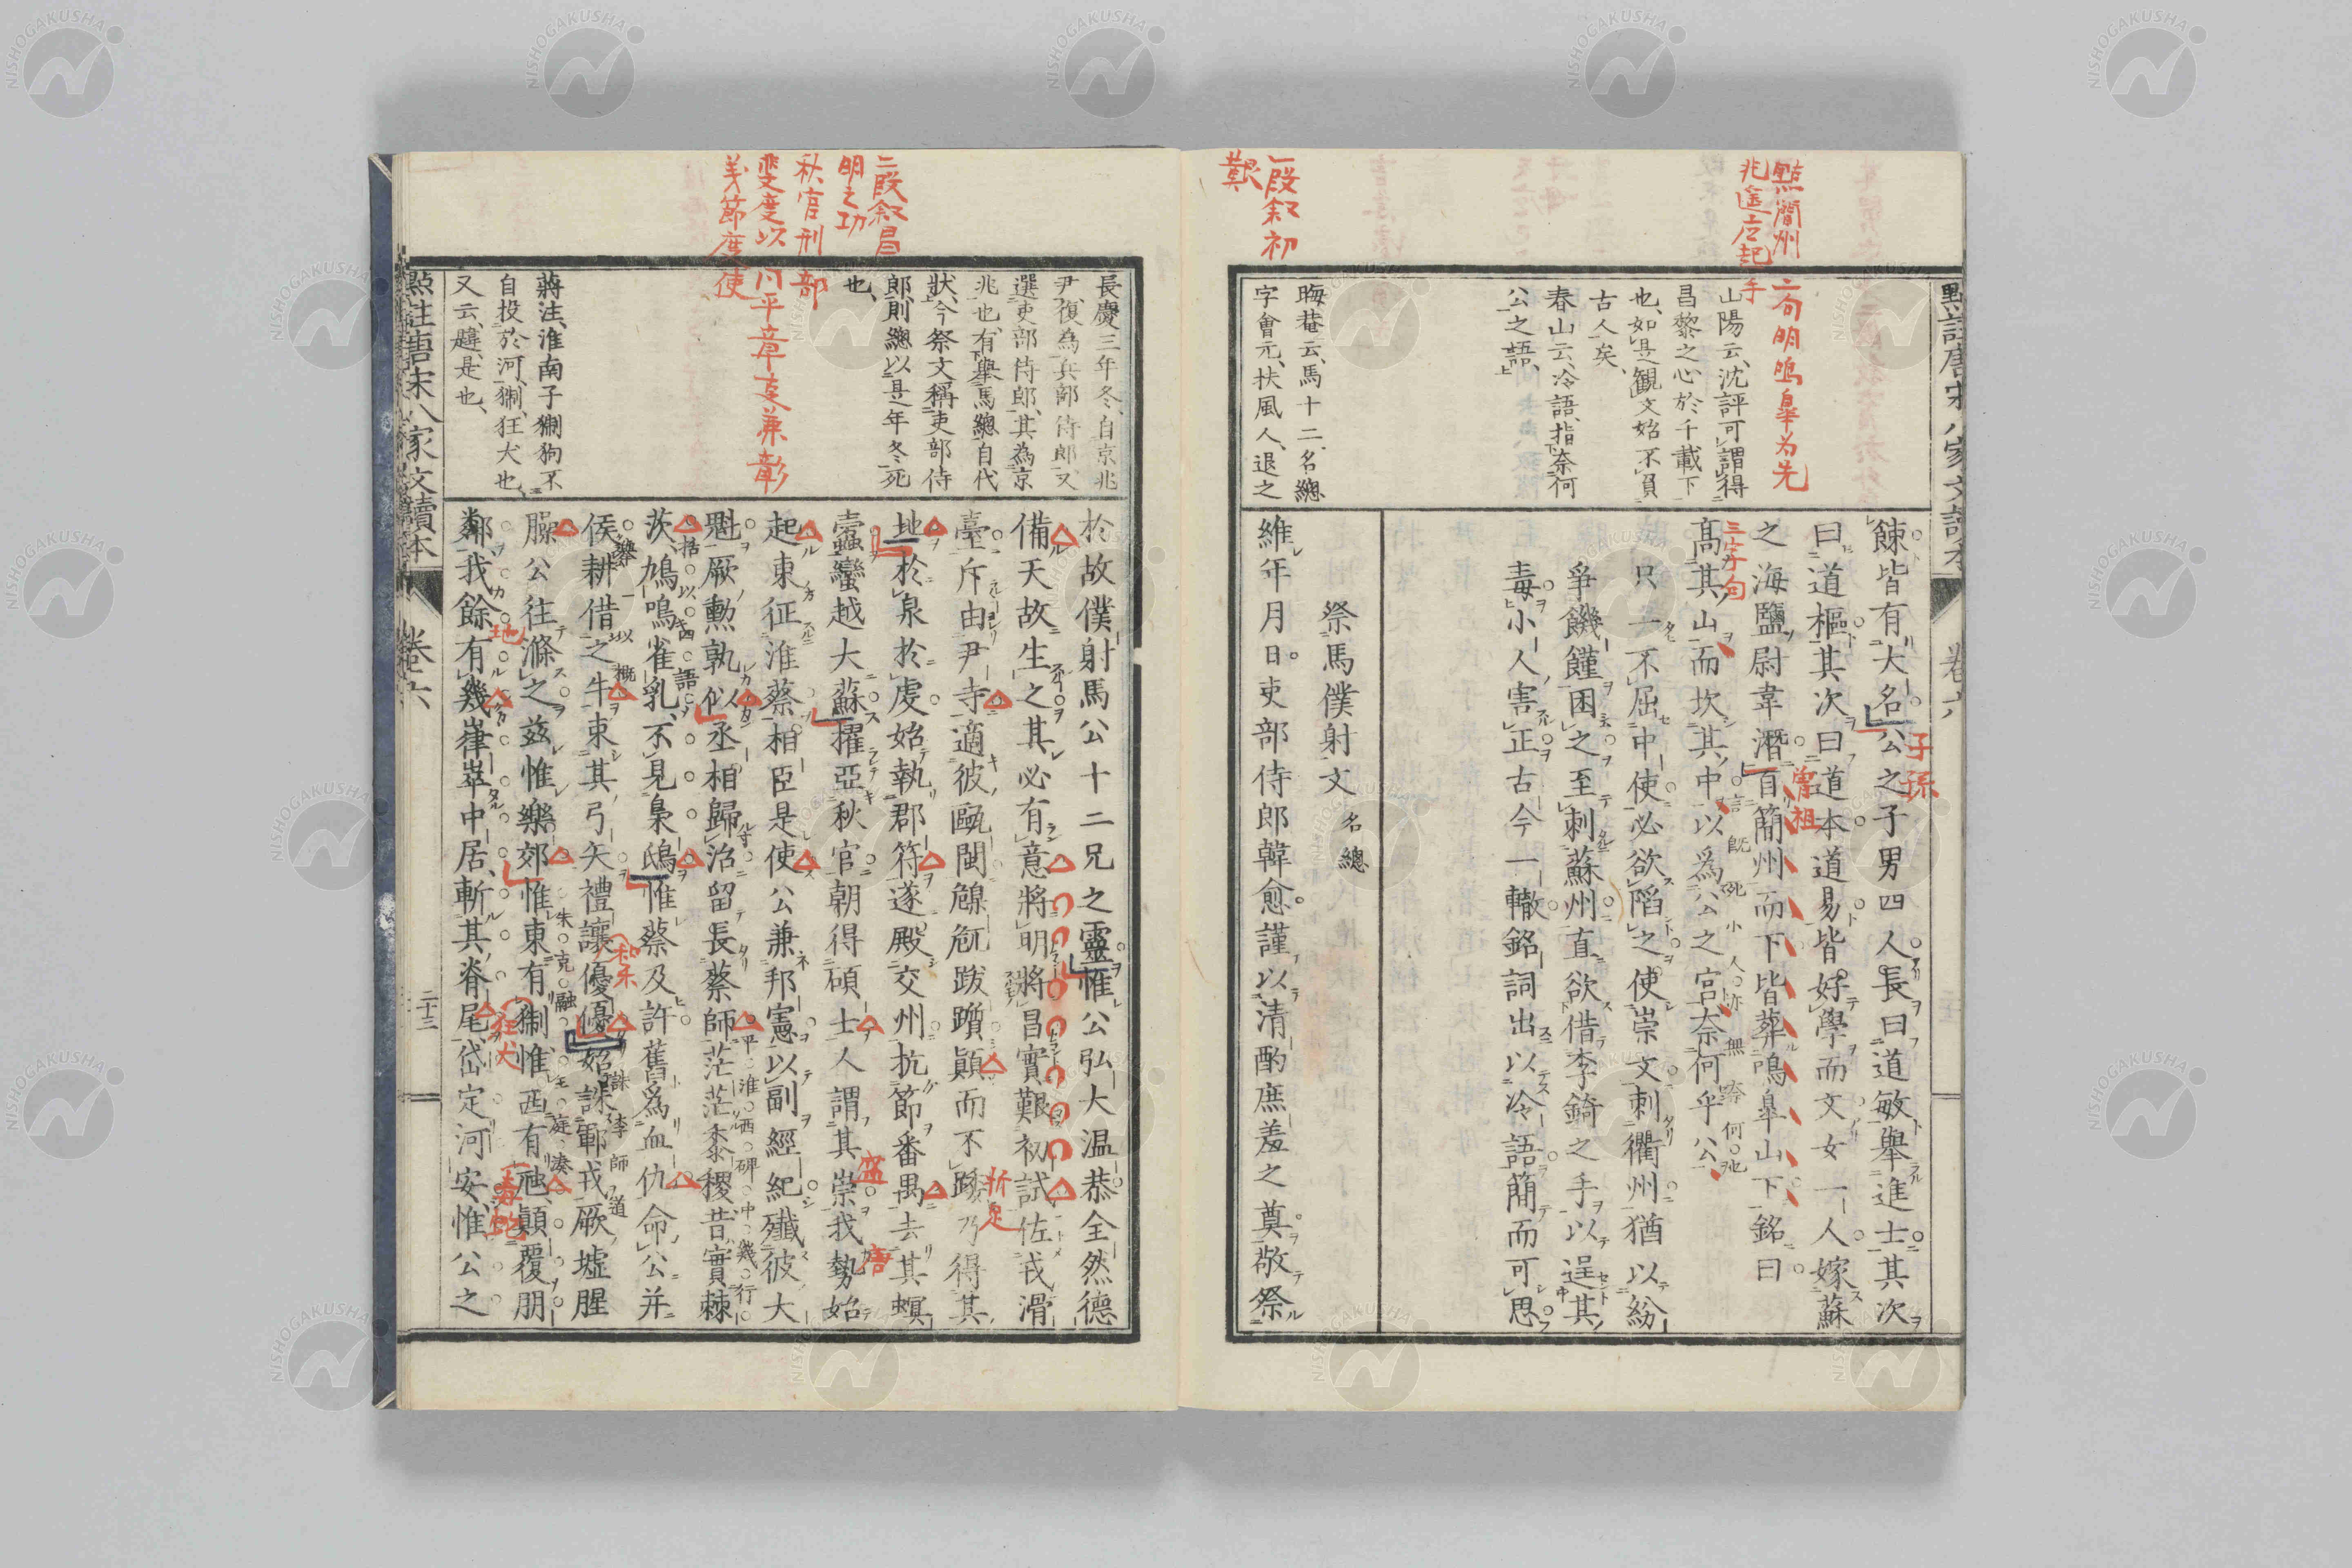 點註唐宋八家文讀本
卷六
點簡州
兆遙應起手
二句明鳴皋為先
山陽云、沈評可謂得
昌黎之心於千載下
也、如是観文始不負
古人矣、
春山云、冷語、指奈何
公之語、
一段叙初
艱
晦菴云、馬十二、名總
字會元、扶風人、退之
餗皆有大名公之子男四人長曰道敏舉進士其次
曰道樞其次曰道本道易皆好學而文女一人嫁蘇
之海鹽尉韋潛自簡州而下皆葬鳴皋山下銘曰
高其山而坎其中以爲公之宮奈何乎公
只一不屈中使必欲陷之使崇文刺衢州猶以紛
爭饑饉困之至刺蘇州直欲借李錡之手以逞其
毒小人害正古今一轍銘詞出以冷語簡而可思
祭馬僕射文 名總
維年月日吏部侍郎韓愈謹以清酌庶羞之奠敬祭
子孫
曾祖
三字句
言既死小人亦無奈何他
二段叙昌
明之功
秋官刑部
裴度以門平章支兼彰
義節度使
長慶三年冬、自京兆
尹、復為兵部侍郎、又
選吏部侍郎、其為京
兆也、有舉馬總自代
狀、今祭文稱吏部侍
郎、則總以是年冬死
也、
蔣注、淮南子猘狗不
自投於河、猘、狂犬也、
又云、韙、是也、
於故僕射馬公十二兄之靈惟公弘大温恭全然德
備天故生之其必有意將明將昌實艱初試佐戎滑
臺斥由尹寺適彼甌閩䲷危跋躓顚而不踣乃得其
地於泉於虔始執郡符遂殿交州抗節番禺去其螟
蠹蠻越大蘇擢亞秋官朝得碩士人謂其崇我勢始
起東征淮蔡相臣是使公兼邦憲以副經紀殲彼大
魁厥勳孰似丞相歸治留長蔡師茫茫黍稷昔實棘
茨鳩鳴雀乳不見梟鴟惟蔡及許舊爲血仇命公并
侯耕借之牛束其弓矢禮讓優優始誅鄆戎厥墟腥
臊公往滌之茲惟樂郊惟東有猘惟西有虺顚覆朋
鄰我餘有幾嵂崒中居斬其脊尾岱定河安惟公之
折足
盛
唐
和柔
地
狂犬
毒蛇
平淮西碑中幾行
括以西語
舉一以概
誅李師道
朱克融
王庭湊
點註唐宋八家文讀本
卷六
二十三